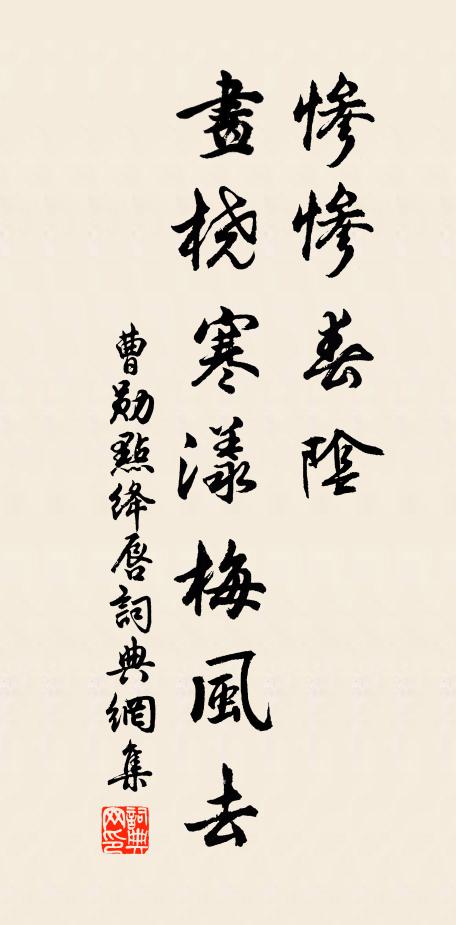 慘慘春陰
畫橈寒漾梅風去
曹勛點絳唇詞典網集
詞典网印